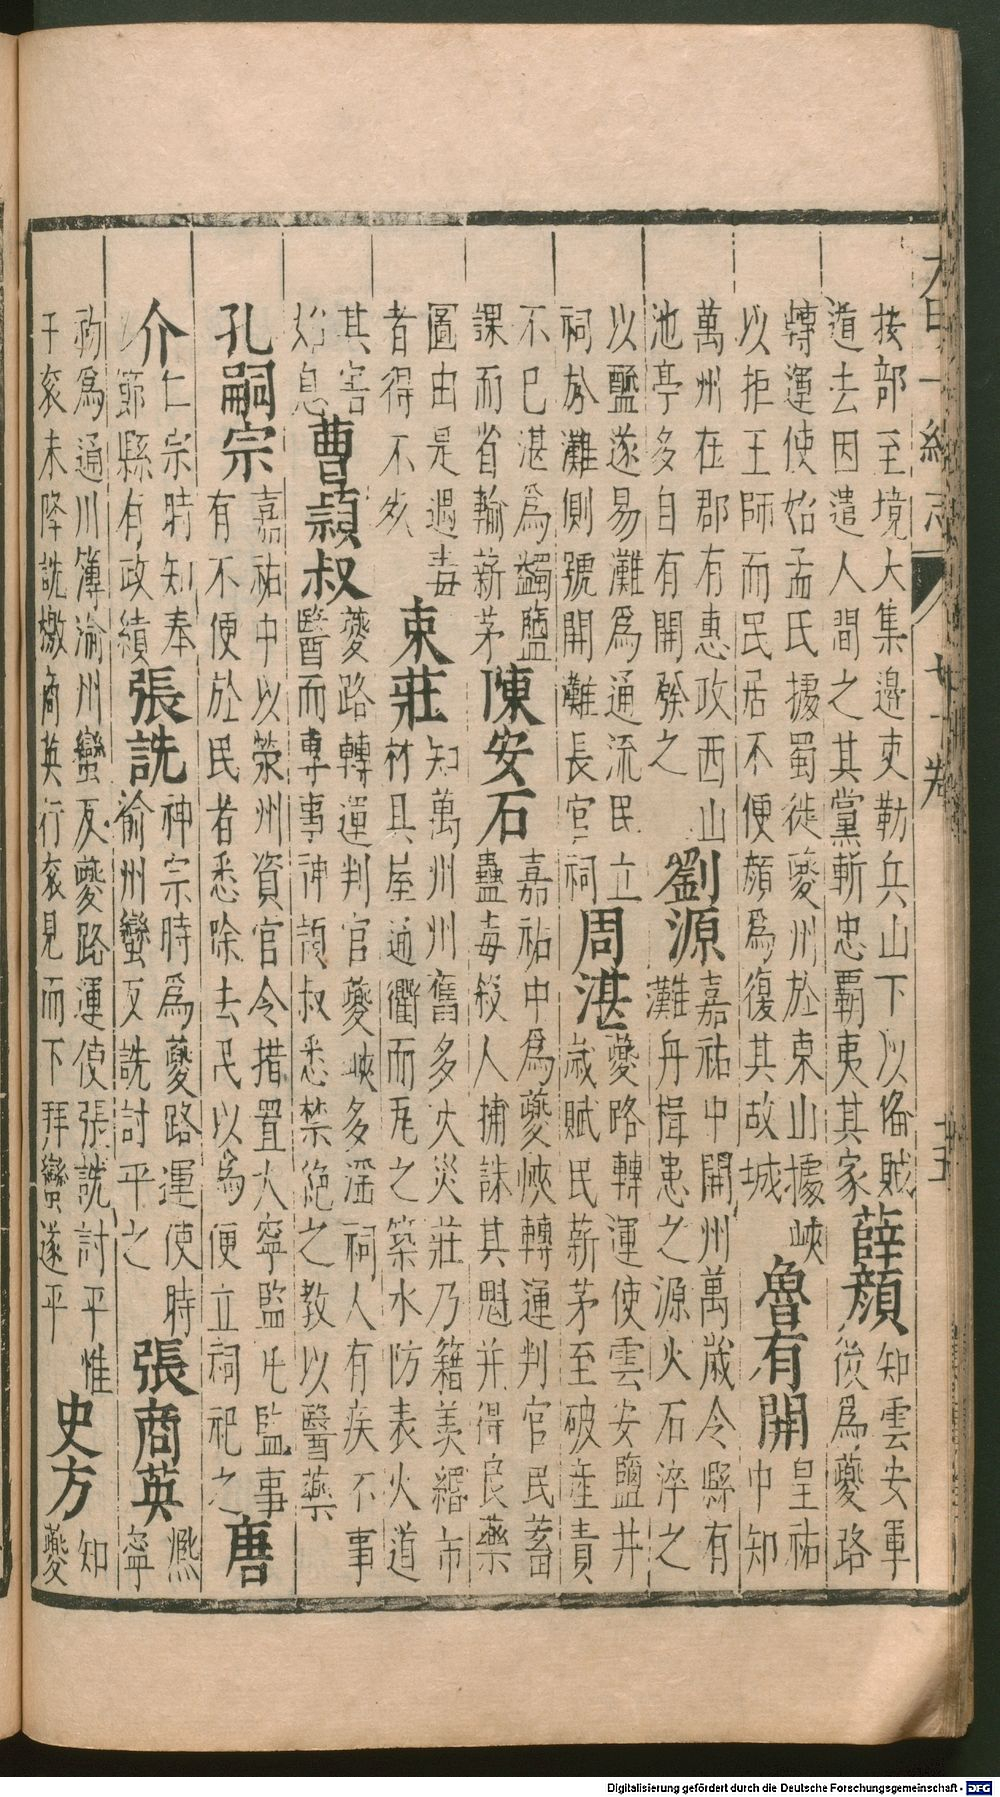 大明一統志 七十卷 十五
按部至境大集邊吏勒兵山下以俻賊
道去因遣人間之其黨斬忠霸夷其家
薛顔
知雲安軍
後為夔路
轉運使始孟氏據蜀徙夔州於東山據峽
以拒王師而民居不便顔為復其故城
魯有開
皇祐
中知
萬州在郡有惠政西山
池亭多自有開發之
劉源
嘉祐中開州萬歲令縣有
灘舟楫患之源火石淬之
以鹽遂易灘為通流民立
祠於灘側號開灘長官祠
周湛
夔路轉運使雲安鹽井
歲賦民薪茅至破産責
不已湛為蠲鹽
課而省輸薪茅
陳安石
嘉祐中為夔峽轉運判官民蓄
蠱毒殺人捕誅其魁并得良藥
圖由是遇毒
者得不死
束莊
知萬州州舊多火災莊乃籍美緡市
材具屋通衢而瓦之築水防表火道
其害
始息
曹穎叔
夔路轉運判官夔峽多滛祠人有疾不事
醫而專事神穎叔悉禁絶之教以醫藥
孔嗣宗
嘉祐中以榮州資官令措置大寧監凡監事
有不便於民者悉除去民以為便立祠祀之
唐
介
仁宗時知奉
節縣有政績
張詵
神宗時為夔路運使時
渝州蠻反詵討平之
張商英
熈
寧
初為通川簿渝州蠻反夔路運使張詵討平惟
王衮未降詵檄商英行衮見而下拜蠻遂平
史方
知
夔
Digitalisierung gefördert durch die Deutsche Forschungsgemeinschaft - DFG